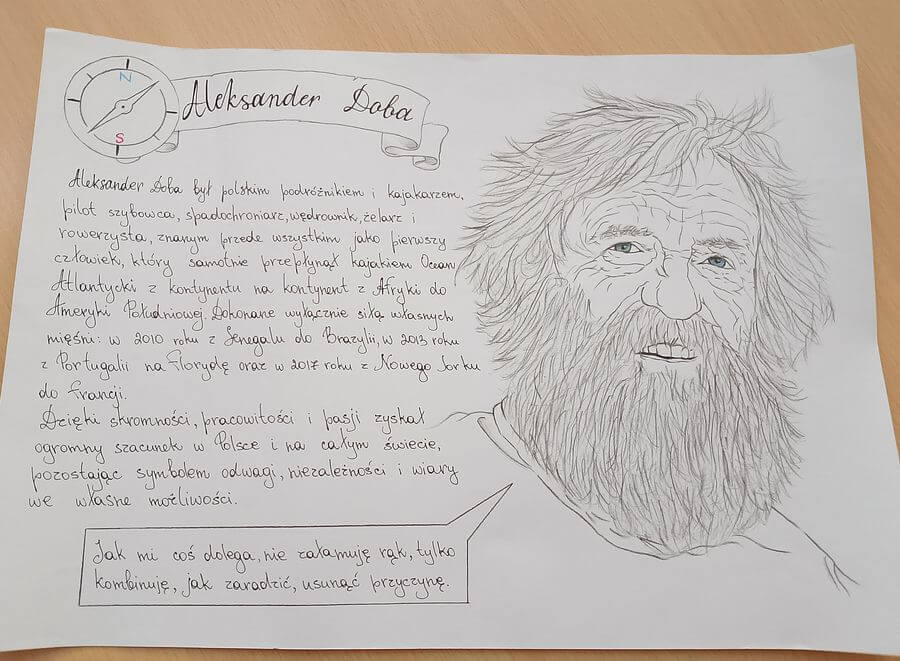 N
S
Aleksander Doba
Aleksander Doba był polskim podróżnikiem i kajakarzem,
pilot szybowca, spadochroniarz, wędrownik, żelarz i
rowerzysta, znanym przede wszystkim jako pierwszy
człowiek, który samotnie przepłynął kajakiem Ocean
Atlantycki z kontynentu na kontynent z Afryki do
Ameryki Południowej. Dokonane wyłącznie siłą własnych
mięśni: w 2010 roku z Senegalu do Brazylii, w 2013 roku
z Portugalii na Florydę oraz w 2017 roku z Nowego Jorku
do Francji.
Dzięki skromności, pracowitości i pasji zyskał
ogromny szacunek w Polsce i na całym świecie,
pozostając symbolem odwagi, niezależności i wiary
we własne możliwości.
Jak mi coś dolega, nie załamuję rąk, tylko
kombinuję, jak zaradzić, usunąć przyczynę.